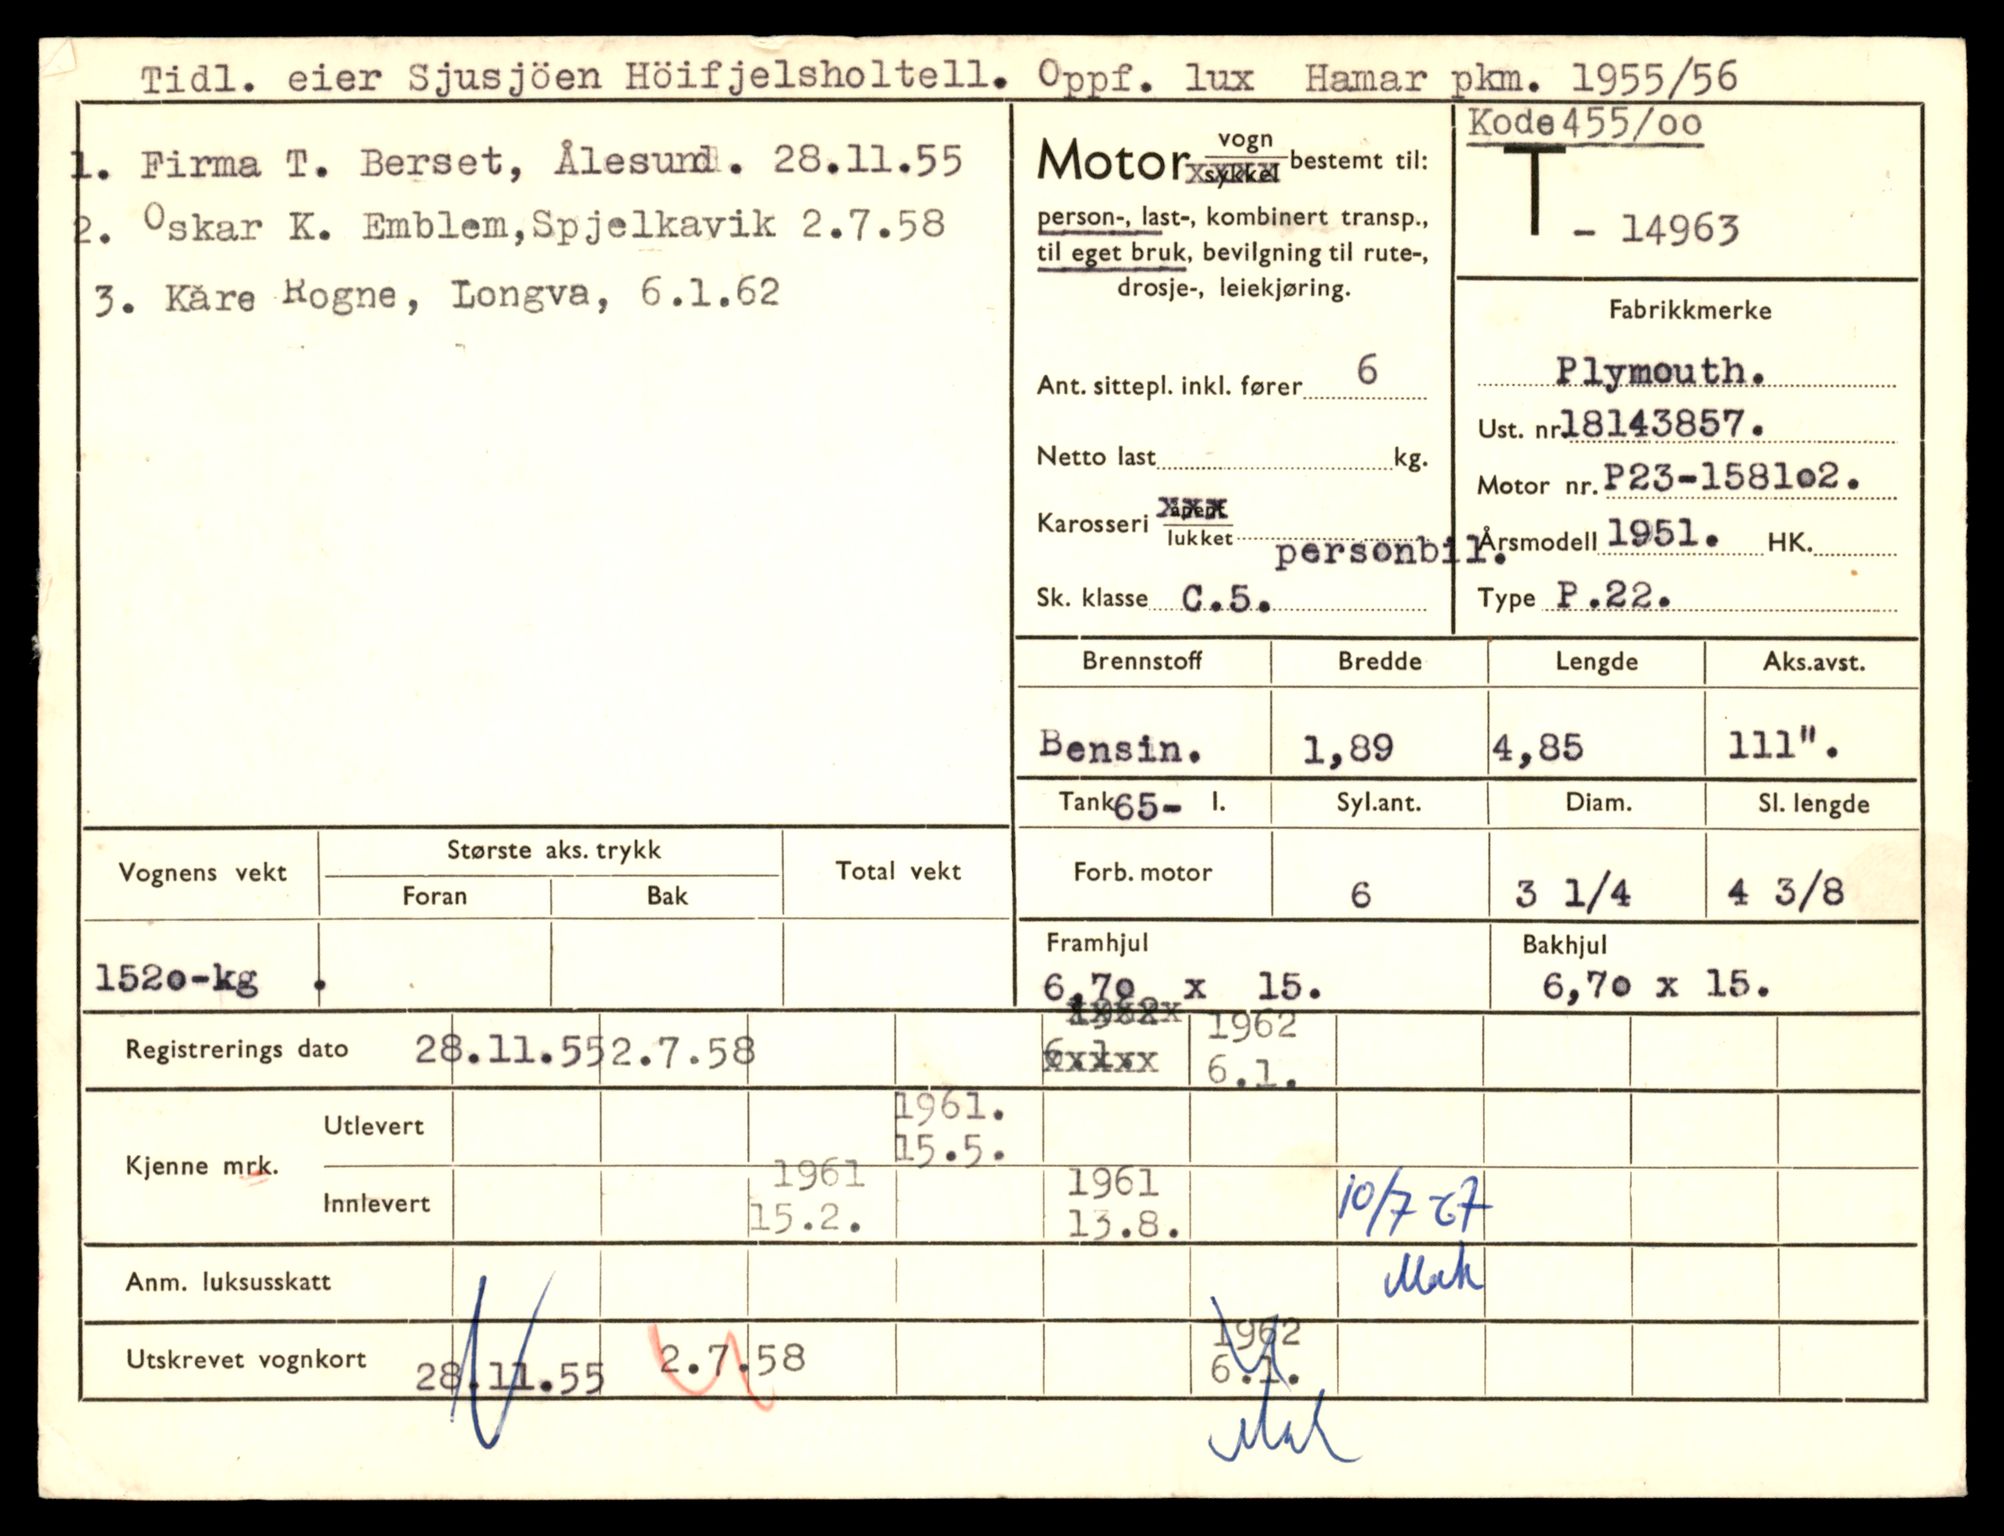 Tidl. eier Sjusjöen Höifjelsholtell. Oppf. lux Hamar pkm. 1955/56
1. Firma T. Berset, Ålesund. 28.11.55
2. Oskar K. Emblem, Spjelkavik 2.7.58
3. Kåre Rogne, Longva, 6.1.62
Motor vogn sykkel bestemt til:
person-, last-, kombinert transp.,
til eget bruk, bevilgning til rute-,
drosje-, leiekjøring.
Ant. sittepl. inkl. fører 6
Netto last kg.
Karosseri åpent lukket personbil.
Sk. klasse C.5.
Kode 455/oo
T - 14963
Fabrikkmerke
Plymouth.
Ust. nr. 18143857.
Motor nr. P23-1581o2.
Årsmodell 1951. HK.
Type P.22.
Brennstoff Bredde Lengde Aks.avst.
Bensin. 1,89 4,85 111".
Tank 65- l. Syl.ant. Diam. Sl. lengde
Forb. motor 6 3 1/4 4 3/8
Framhjul Bakhjul
6,7o x 15. 6,7o x 15.
Vognens vekt Største aks. trykk Total vekt
Foran Bak
152o-kg .
1962 1962
Registrerings dato 28.11.55 2.7.58 6.1. 6.1.
1961.
Utlevert 15.5.
Kjenne mrk.
1961 1961
Innlevert 15.2. 13.8. 10/7 67
Mak
Anm. luksusskatt
1962
Utskrevet vognkort 28.11.55 2.7.58 6.1.
Mak